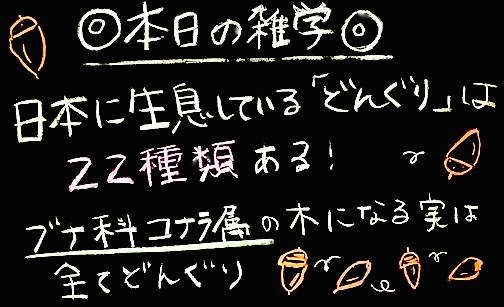 ◎本日の雑学◎
日本に生息している「どんぐり」は
22種類ある!
ブナ科コナラ属の木になる実は
全てどんぐり